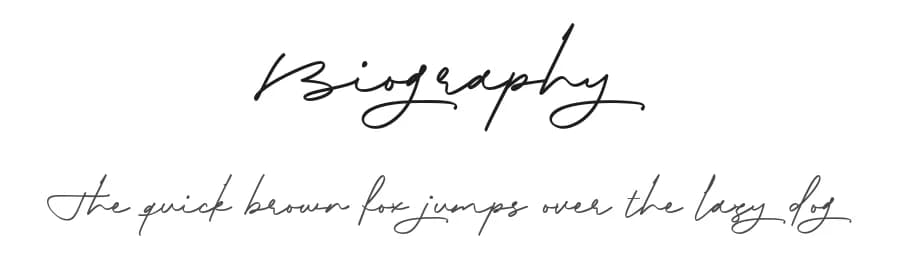 Biography
The quick brown fox jumps over the lazy dog